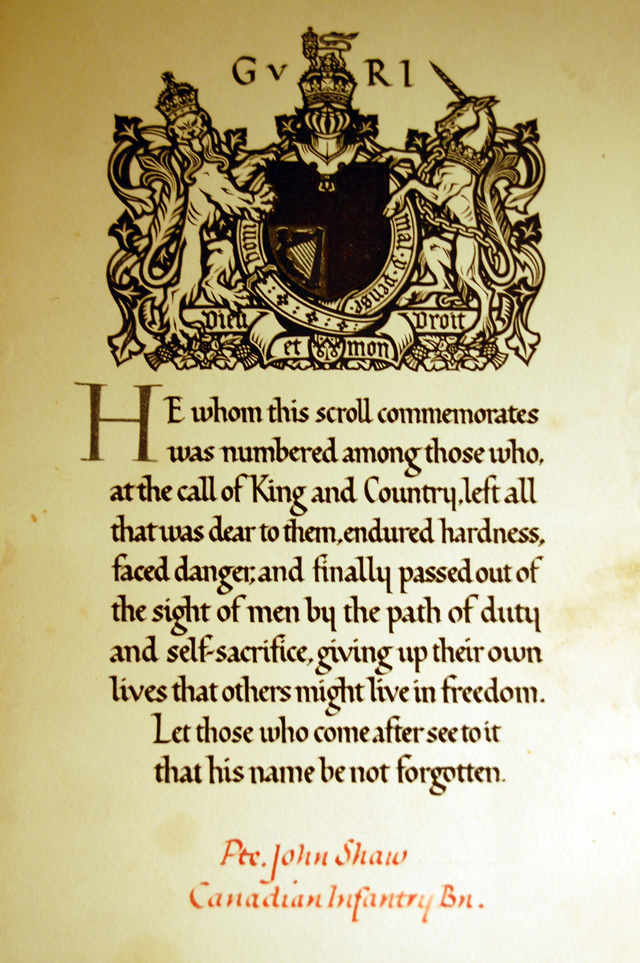 GV RI
mal·y·pense
Dieu Droit
et mon
HE whom this scroll commemorates
was numbered among those who,
at the call of King and Country, left all
that was dear to them, endured hardness,
faced danger, and finally passed out of
the sight of men by the path of duty
and self-sacrifice, giving up their own
lives that others might live in freedom.
Let those who come after see to it
that his name be not forgotten.
Pte. John Shaw
Canadian Infantry Bn.